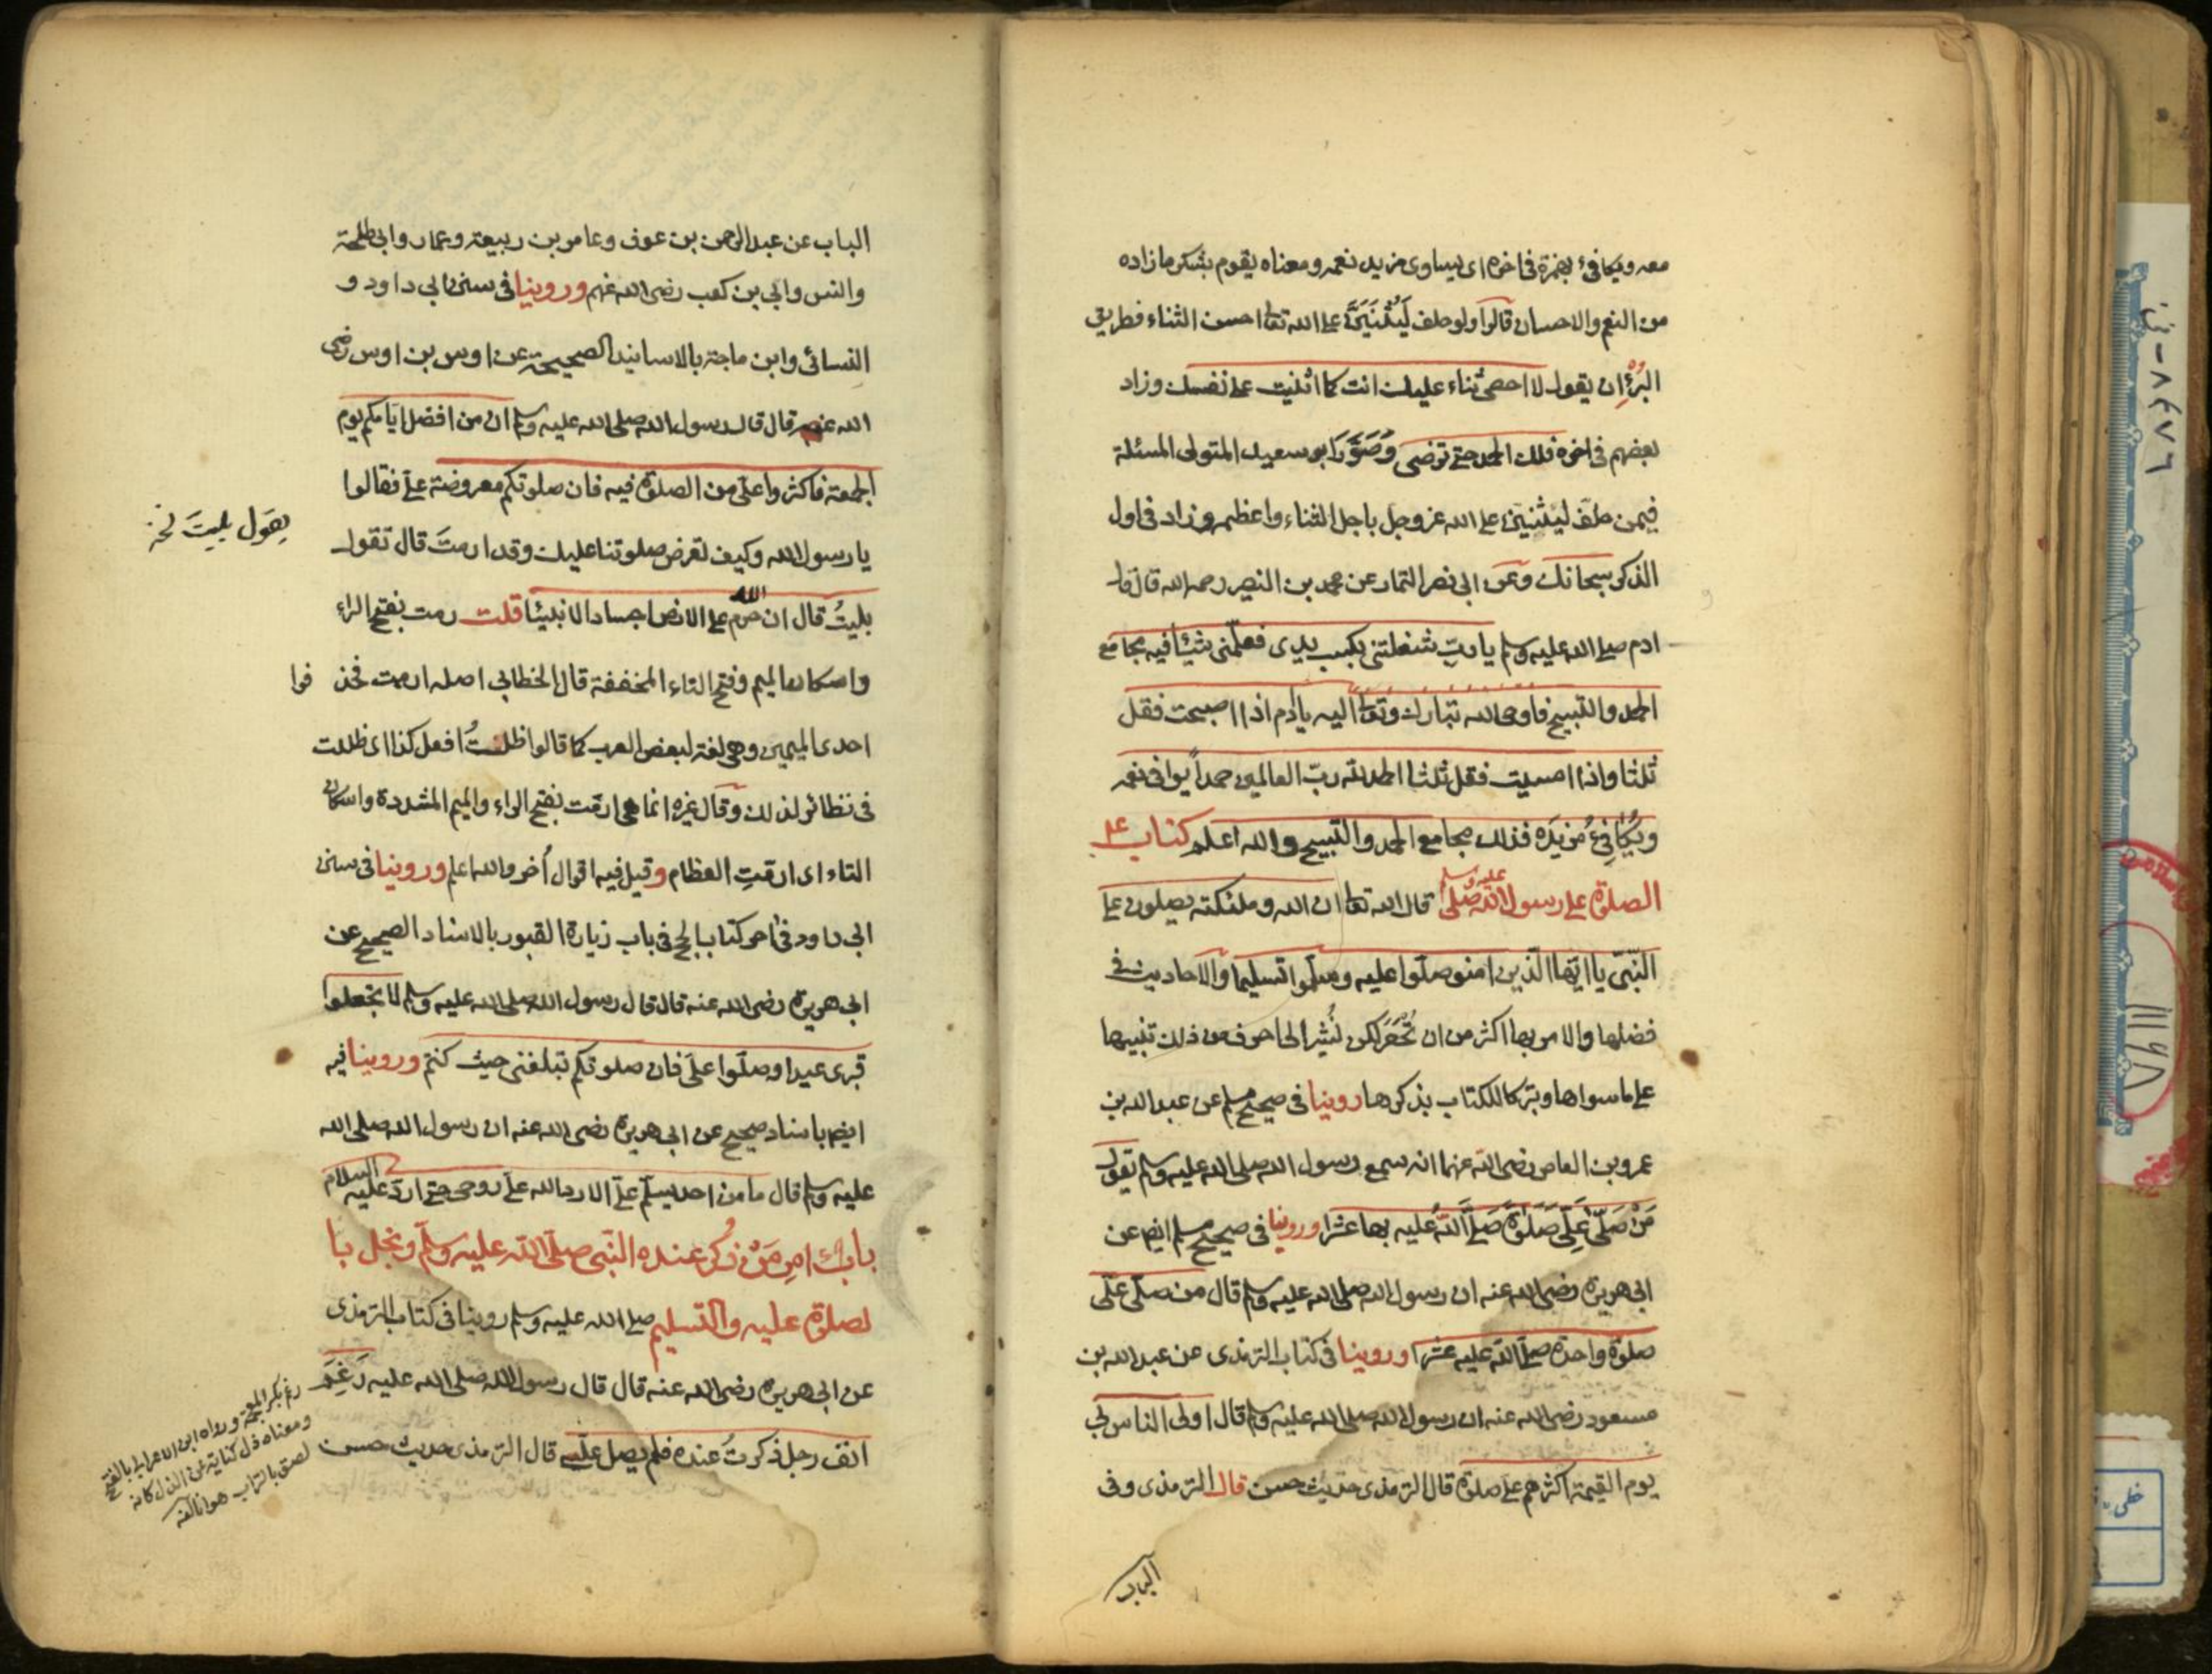 معه ويكافئ بهمزة في اخره اى يساوى مزيد نعمه ومعناه يقوم بشكر ما زاده
من النعم والاحسان قالوا ولو حلف لَيُثْنِيَنَّ على الله تعا احسن الثناء فطريق
البرّ ان يقول لا احصى ثناء عليك انت كما اثنيت على نفسك وزاد
بعضهم في اخره فلك الحمد حتى ترضى وَصَوَّرَ ابو سعيد المتولى المسئلة
فيمن حلف ليثنين على الله عز وجل باجل الثناء واعظمه وزاد في اول
الذكر سبحانك وعن ابى نصر التمار عن محمد بن النضر رحمه الله قال قال
ادم صلى الله عليه وسلم يا ربّ شغلتنى بكسب يدى فعلّمنى شيئا فيه مجامع
الحمد والتسبيح فاوحى الله تبارك وتعا اليه يا ادم اذا اصبحت فقل
ثلثا واذا امسيت فقل ثلثا الحمد لله ربّ العالمين حمداً يوافى نعمه
ويُكافئُ مزيدَه فذلك مجامع الحمد والتسبيح والله اعلم كتاب
الصلوة على رسول الله صلى عليه وسلم قال الله تعا ان الله وملئكته يصلون على
النّبىّ يا ايّها الّذين امنو صلّوا عليه وسلّموا تسليما والاحاديث في
فضلها والامر بها اكثر من ان تُحْصَر لكن نُشير الى احرف من ذلك تنبيها
على ما سواها وتبركا للكتاب بذكرها روينا في صحيح مسلم عن عبد الله بن
عمرو بن العاص رضى الله عنهما انه سمع رسول الله صلى الله عليه وسلم يقول
مَنْ صَلّى عَلَىّ صَلَوةً صَلَّى اللهُ عليه بها عشرا وروينا في صحيح مسلم ايضا عن
ابى هريرة رضى الله عنه ان رسول الله صلى الله عليه وسلم قال من صلّى علّى
صلوة واحدة صلّى الله عليه عشرا وروينا في كتاب الترمذى عن عبد الله بن
مسعود رضى الله عنه ان رسول الله صلى الله عليه وسلم قال اولى الناس بى
يوم القيمة اكثرهم على صلوة قال الترمذى حديث حسن قال الترمذى وفى
الباب
الباب عن عبد الرحمن بن عوف وعامر بن ربيعة وعمار وابى طلحة
والنس وابى بن كعب رضى الله عنهم وروينا في سنن ابى داود و
النسائى وابن ماجة بالاسانيد الصحيحة عن اوس بن اوس رضى
الله عنه قال قال رسول الله صلى الله عليه وسلم ان من افضل ايّامكم يوم
الجمعة فاكثروا علىّ من الصلوة فيه فان صلوتكم معروضة علىّ فقالوا
يا رسول الله وكيف تعرض صلوتنا عليك وقد ارمتَ قال تقول
يقول بليتَ نخ
بليتُ قال ان الله حرم على الارض اجساد الانبيا قلت رمت بفتح الراء
واسكان الميم وفتح التاء المخففة قال الخطابى اصله ارممت فحذ فوا
احدى الميمين وهى لغة لبعض العرب كما قالوا ظلتُ افعل كذا اى ظللت
في نظائر لذلك وقال غيره انما هى ارمّت بفتح الراء والميم المشددة واسكان
التاء اى ارمّتِ العظام وقيل فيه اقوال أخر والله اعلم وروينا في سنن
ابى داود في اخر كتاب الحج في باب زيارة القبور بالاسناد الصحيح عن
ابى هريرة رضى الله عنه قال قال رسول الله صلى الله عليه وسلم لا تجعلوا
قبرى عيدا وصلّوا علىّ فان صلوتكم تبلغنى حيث كنتم وروينا فيه
ايضا باسناد صحيح عن ابى هريرة رضى الله عنه ان رسول الله صلى الله
عليه وسلم قال ما من احد يسلّم علىّ الا رد الله علىّ روحى حتى اردّ عليه السلام
بابُ امرِ مَنْ ذُكر عنده النّبى صلّى الله عليه وسلّم
لصلوة عليه والتسليم صلى الله عليه وسلم روينا في كتاب الترمذى
عن ابى هريرة رضى الله عنه قال قال رسول الله صلى الله عليه رَغِمَ
انف رجل ذكرتُ عنده فلم يصل علىّ قال الترمذى حديث حسن
ورواه ابن الاعرابى بالفتح
ومعناه ذل كناية عن الذل كانه
لصق بالتراب هوانا لانفه